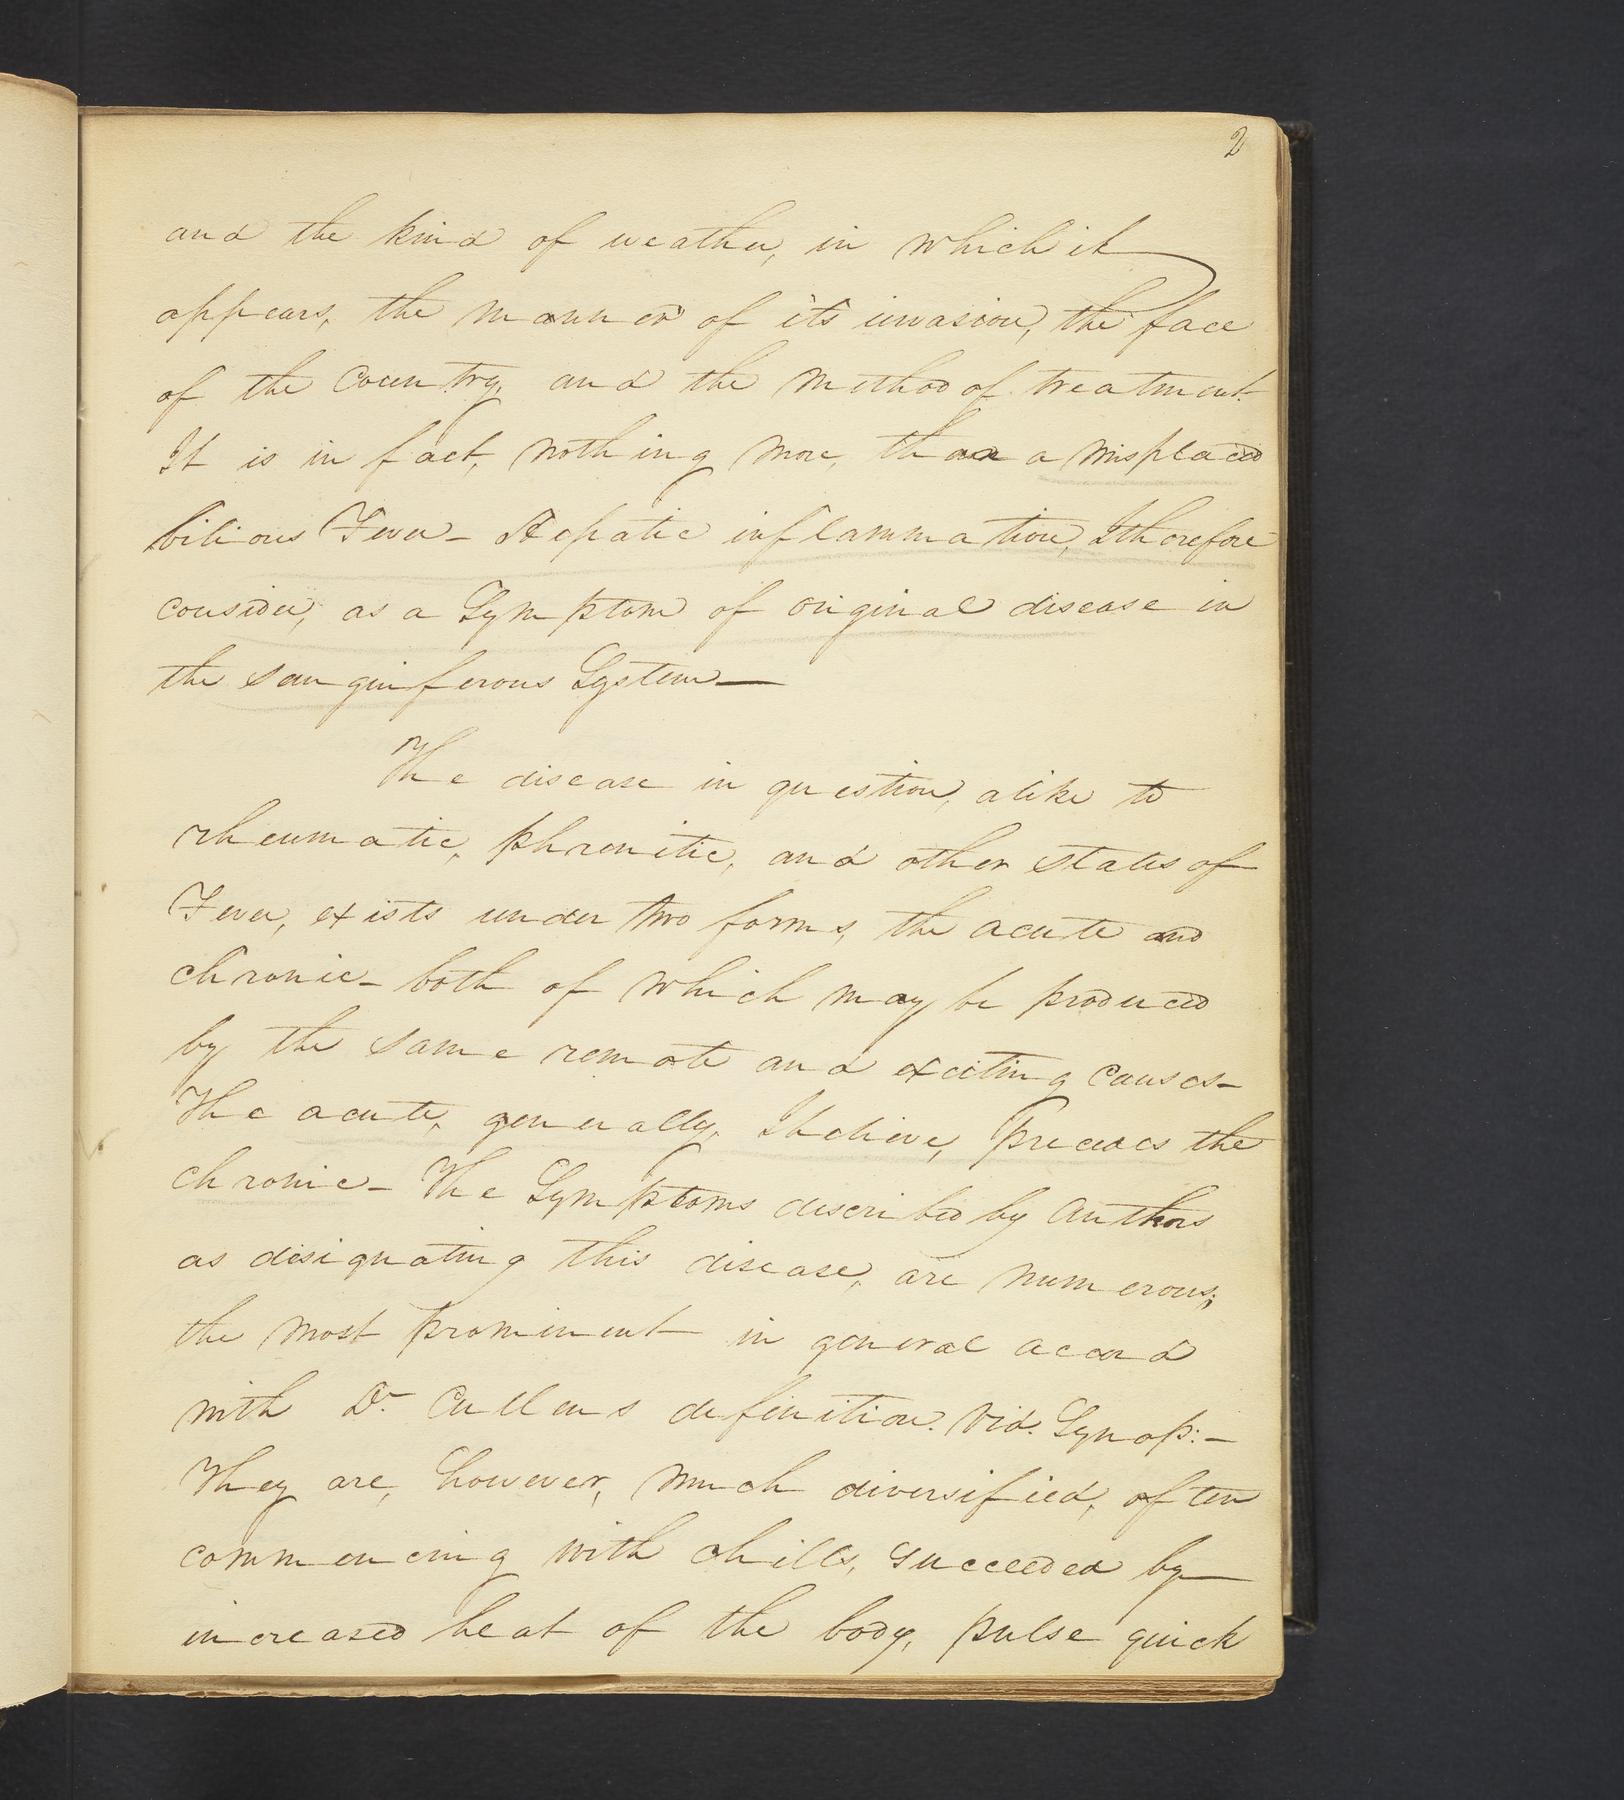 2
and the kind of weather, in which it
appears, the manner of it's invasion, the face
of the Country, and the method of treatment.
It is in fact, nothing more, than a misplaced
bilious Fever - Hepatic inflammation, I therefore
consider, as a Symptom of original disease in
the sanguiferous System -
The disease in question, alike to
rheumatic, phrenitic, and other states of
Fever, exists under two forms, the acute and
chronic - both of which may be produced
by the same remote and exciting causes -
The acute, generally, I believe, precedes the
chronic - The Symptoms described by Authors
as designating this disease, are numerous;
the most prominent in general accord
with Dr. Cullens definition. Vid. Synop: -
They are, however, much diversified, often
commencing with chills, succeeded by
increased heat of the body, pulse quick